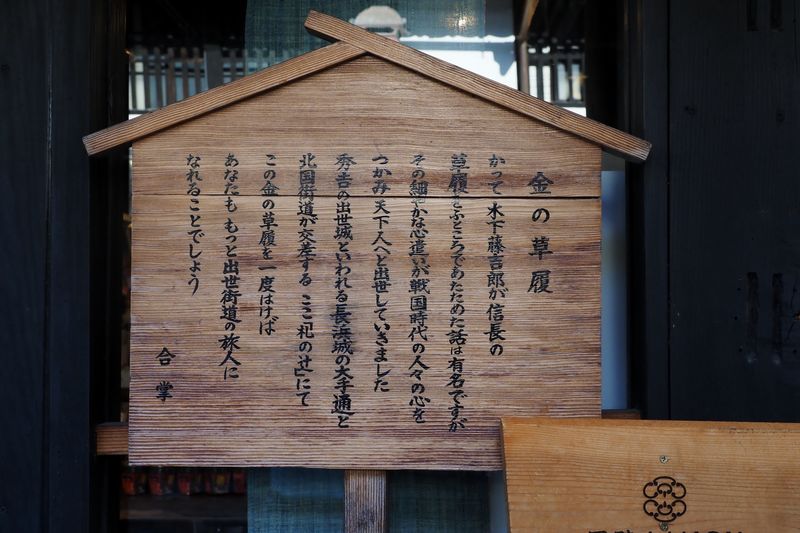 金の草履
かって 木下藤吉郎が信長の
草履をふところであたためた話は有名ですが
その細やかな心遣いが戦国時代の人々の心を
つかみ天下人へと出世していきました
秀吉の出世城といわれる長浜城の大手通と
北国街道が交差する ここ「札の辻」にて
この金の草履を一度はけば
あなたも もっと出世街道の旅人に
なれることでしょう
合掌